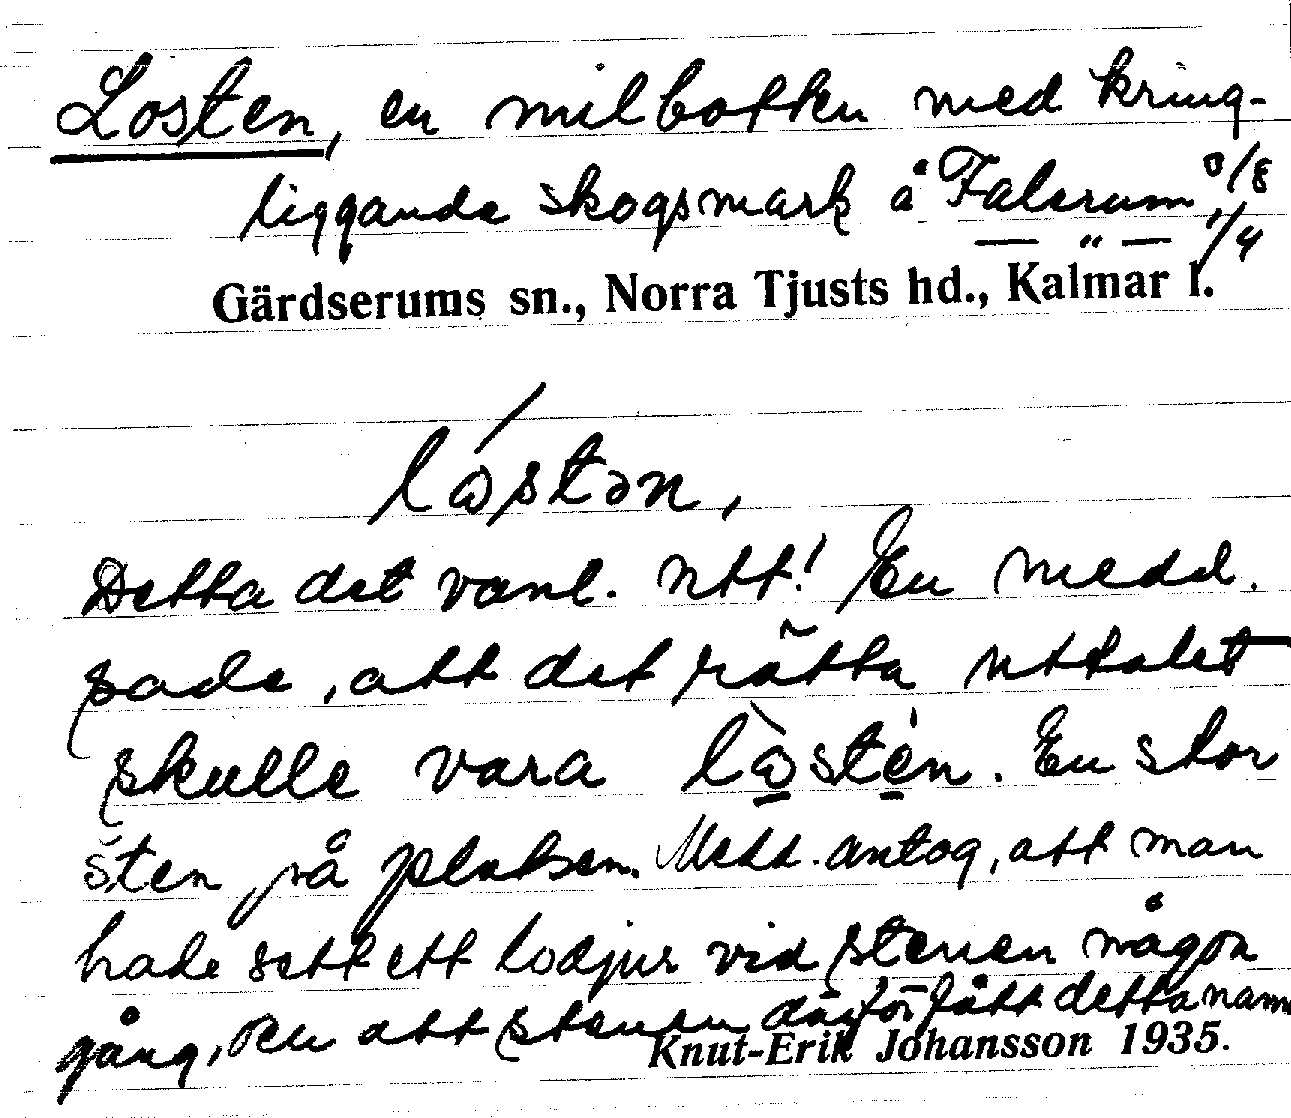 Losten, en milbotten med kring-
liggande skogsmark å Falerum, 0/8
— " — 1/4
Gärdserums sn., Norra Tjusts hd., Kalmar l.
lɷstən,
Detta det vanl. utt! En medd.
sade, att det rätta uttalet
skulle vara lɷ̀sten. En stor
sten på platsen. Medd. antog, att man
hade sett ett lodjur vid stenen någon
gång, och att stenen därför fått detta namn
Knut-Erik Johansson 1935.